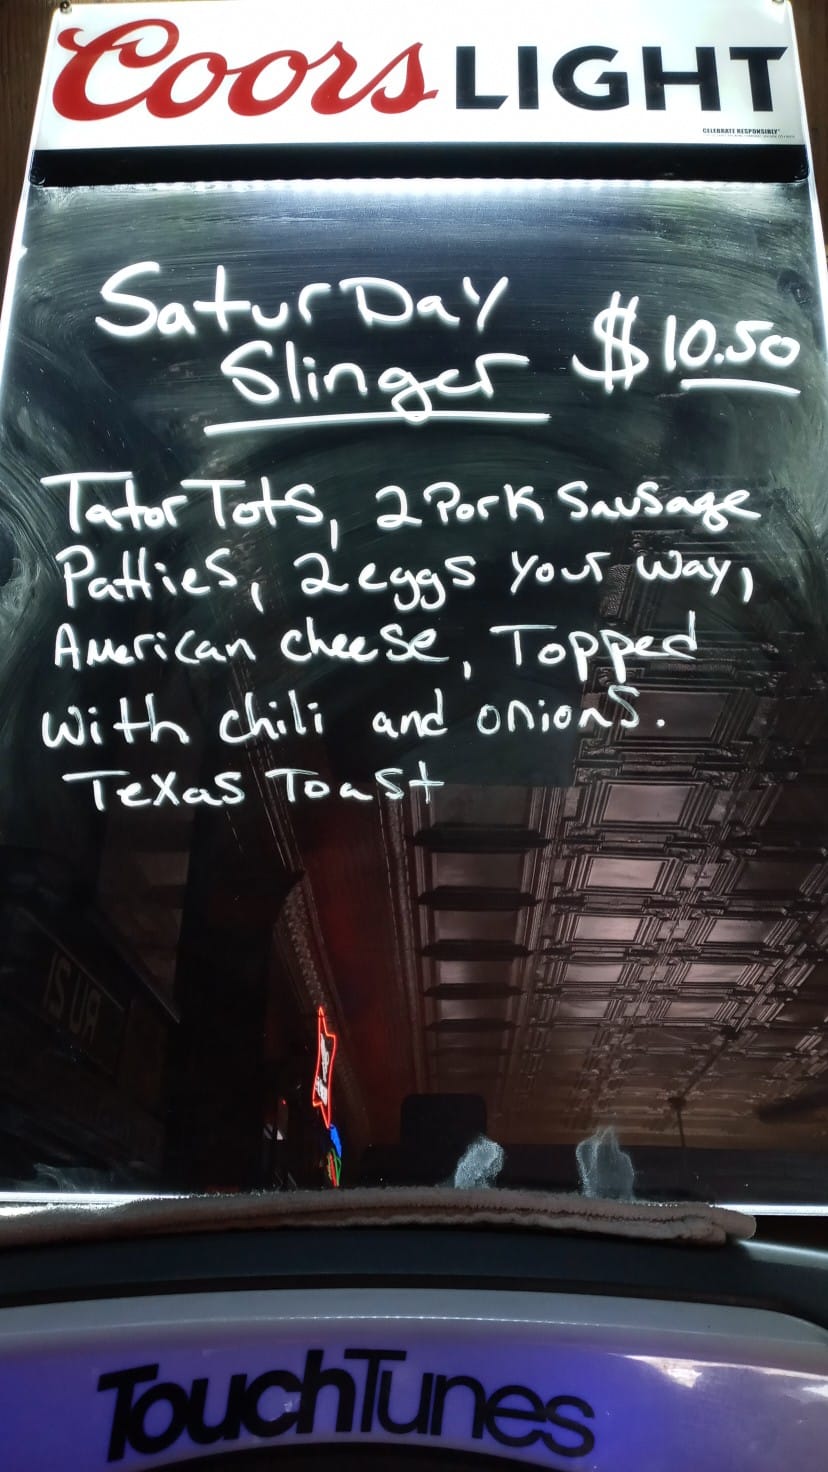 Coors LIGHT
CELEBRATE RESPONSIBLY®
Saturday
Slinger $10.50
Tator Tots, 2 Pork Sausage
Patties, 2 eggs your way,
American cheese, Topped
with chili and onions.
Texas Toast
TouchTunes